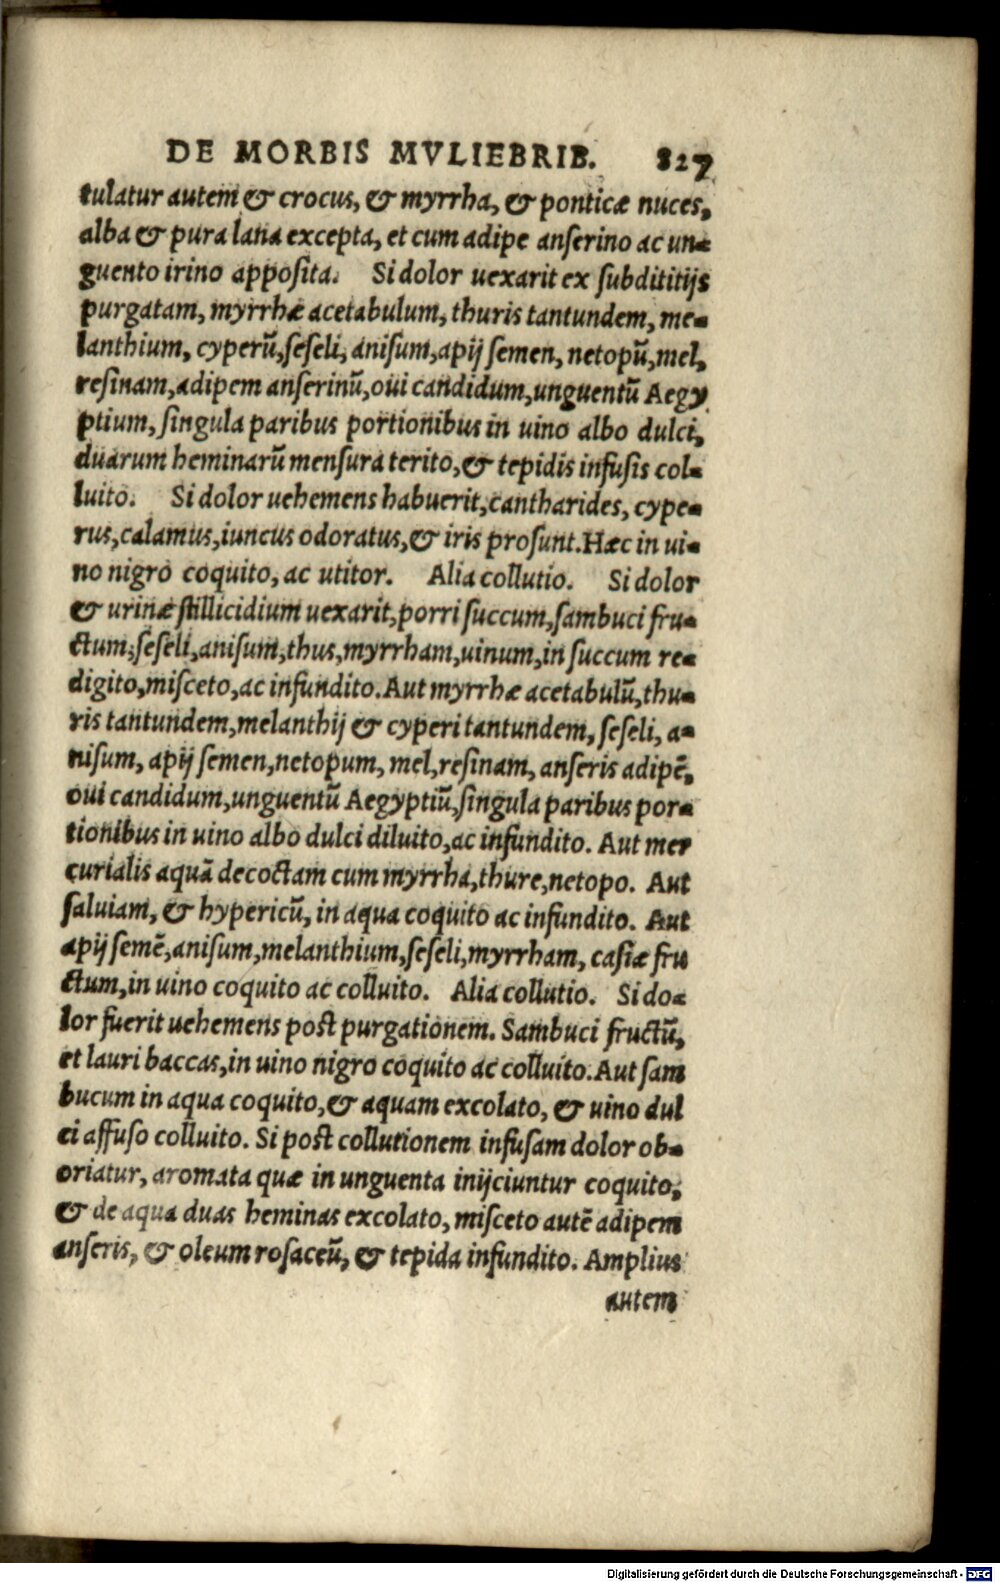 DE MORBIS MVLIEBRIB. 827
tulatur autem & crocus, & myrrha, & ponticæ nuces,
alba & pura lana excepta, et cum adipe anserino ac un-
guento irino apposita. Si dolor uexarit ex subdititijs
purgatam, myrrhæ acetabulum, thuris tantundem, me-
lanthium, cyperū, seseli, anisum, apij semen, netopū, mel,
resinam, adipem anserinū, oui candidum, unguentū Aegy
ptium, singula paribus portionibus in uino albo dulci,
duarum heminarū mensura terito, & tepidis infusis col-
luito. Si dolor uehemens habuerit, cantharides, cype-
rus, calamus, iuncus odoratus, & iris prosunt. Hæc in ui-
no nigro coquito, ac utitor. Alia collutio. Si dolor
& urinæ stillicidium uexarit, porri succum, sambuci fru-
ctum, seseli, anisum, thus, myrrham, uinum, in succum re-
digito, misceto, ac infundito. Aut myrrhæ acetabulū, thu-
ris tantundem, melanthij & cyperi tantundem, seseli, a-
nisum, apij semen, netopum, mel, resinam, anseris adipē,
oui candidum, unguentū Aegyptiū, singula paribus por-
tionibus in uino albo dulci diluito, ac infundito. Aut mer
curialis aquā decoctam cum myrrha, thure, netopo. Aut
saluiam, & hypericū, in aqua coquito ac infundito. Aut
apij semē, anisum, melanthium, seseli, myrrham, casiæ fru
ctum, in uino coquito ac colluito. Alia collutio. Si do-
lor fuerit uehemens post purgationem. Sambuci fructū,
et lauri baccas, in uino nigro coquito ac colluito. Aut sam
bucum in aqua coquito, & aquam excolato, & uino dul
ci affuso colluito. Si post collutionem infusam dolor ob-
oriatur, aromata quæ in unguenta inijciuntur coquito,
& de aqua duas heminas excolato, misceto autē adipem
anseris, & oleum rosaceū, & tepida infundito. Amplius
autem
Digitalisierung gefördert durch die Deutsche Forschungsgemeinschaft - DFG